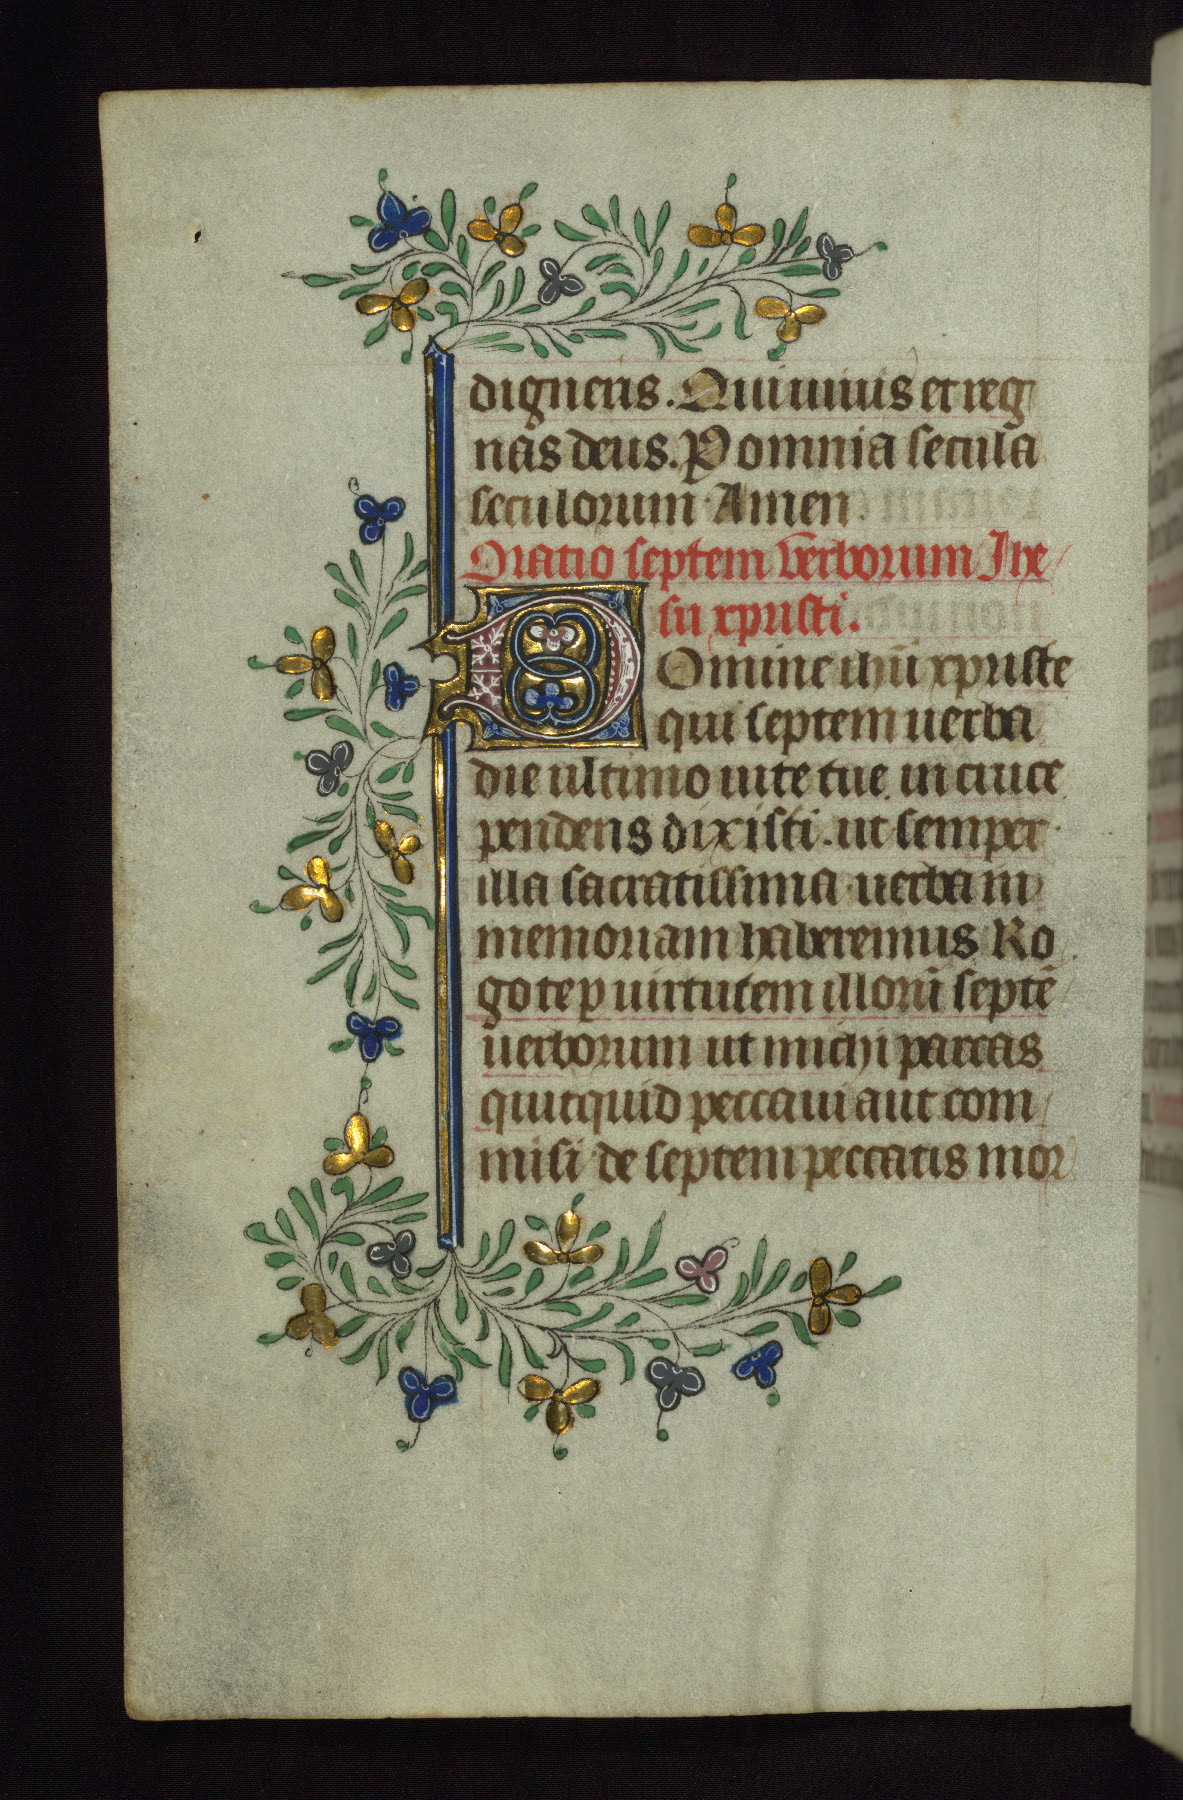 digneris. Qui uiuis et reg
nas deus. P omnia secula
seculorum Amen
Oratio septem verborum Ihe
su xpristi.
Domine ihũ xpriste
qui septem uerba
die ultimo uite tue in cruce
pendens dixisti. ut semper
illa sacratissima uerba in
memoriam haberemus Ro
go te p uirtutem illorũ septẽ
uerborum ut michi parcas
quitquid peccaui aut com
misi de septem peccatis mor